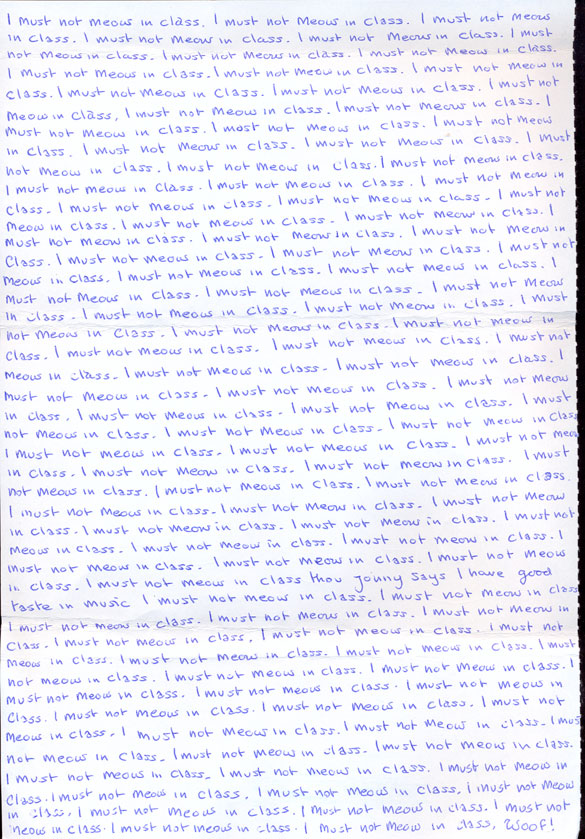 I must not meow in class. I must not Meows in class. I must not meow
in class. I must not meow in class. I must not meow in class. I must
not meow in class. I must not meow in class. I must not meow in class.
I must not meow in class. I must not meow in class. I must not meow in
class. I must not meow in class. I must not meow in class. I must not
meow in class, I must not meow in class. I must not meow in class. I
must not meow in class. I must not meow in class. I must not meow
in class. I must not meow in class. I must not meow in class. I must
not meow in class. I must not meow in class. I must not meow in class.
I must not meow in class. I must not meow in class. I must not meow in
class. I must not meow in class. I must not meow in class. I must not
meow in class. I must not meow in class. I must not meow in class. I
must not meow in class. I must not meow in class. I must not meow in
class. I must not meow in class. I must not meow in class. I must not
meow in class. I must not meow in class. I must not meow in class. I
must not meow in class. I must not meow in class. I must not meow
in class. I must not meow in class. I must not meow in class. I must
not meow in class. I must not meow in class. I must not meow in
class. I must not meow in class. I must not meow in class. I must not
meow in class. I must not meow in class. I must not meow in class. I
must not meow in class. I must not meow in class. I must not meow
in class. I must not meow in class. I must not meow in class. I must
not meow in class. I must not meow in class. I must not meow in class
I must not meow in class. I must not meow in class. I must not meow
in class. I must not meow in class. I must not meow in class. I must
not meow in class. I must not meow in class. I must not meow in class.
I must not meow in class. I must not meow in class. I must not meow
in class. I must not meow in class. I must not meow in class. I must not
meow in class. I must not meow in class. I must not meow in class. I
must not meow in class. I must not meow in class. I must not meow
in class. I must not meow in class thou Jonny says I have good
taste in music I must not meow in class. I must not meow in class
I must not meow in class. I must not meow in class. I must not meow in
class. I must not meow in class. I must not meow in class. I must not
meow in class. I must not meow in class. I must not meow in class. I must
not meow in class. I must not meow in class. I must not meow in class. I
must not meow in class. I must not meow in class. I must not meow in
class. I must not meow in class. I must not meow in class. I must not
meow in class. I must not meow in class. I must not meow in class. I must
not meow in class. I must not meow in class. I must not meow in class.
I must not meow in class. I must not meow in class. I must not meow in
class. I must not meow in class. I must not meow in class, I must not meow
in class. I must not meow in class. I must not meow in class. I must not
meow in class. I must not meow in class. I must not meow in class, Woof!